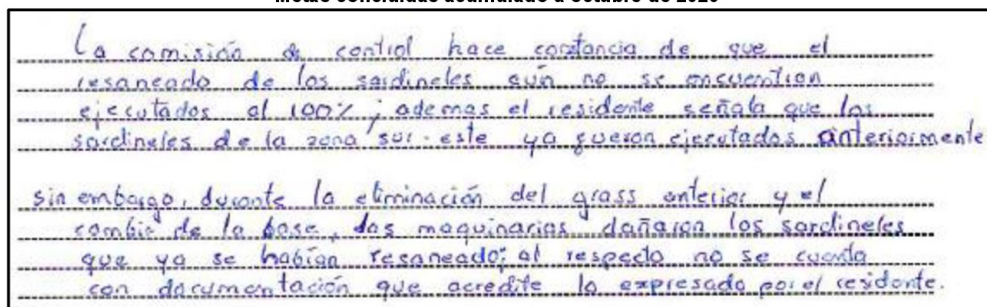 La comisión de control hace constancia de que el
resaneado de los sardineles aún no se encuentran
ejecutados al 100%; ademas el residente señala que los
sardineles de la zona sur-este ya fueron ejecutados anteriormente
sin embargo, durante la eliminación del grass anterior y el
cambio de la base, las maquinarias dañaron los sardineles
que ya se habían resaneado; al respecto no se cuenta
con documentación que acredite lo expresado por el residente.